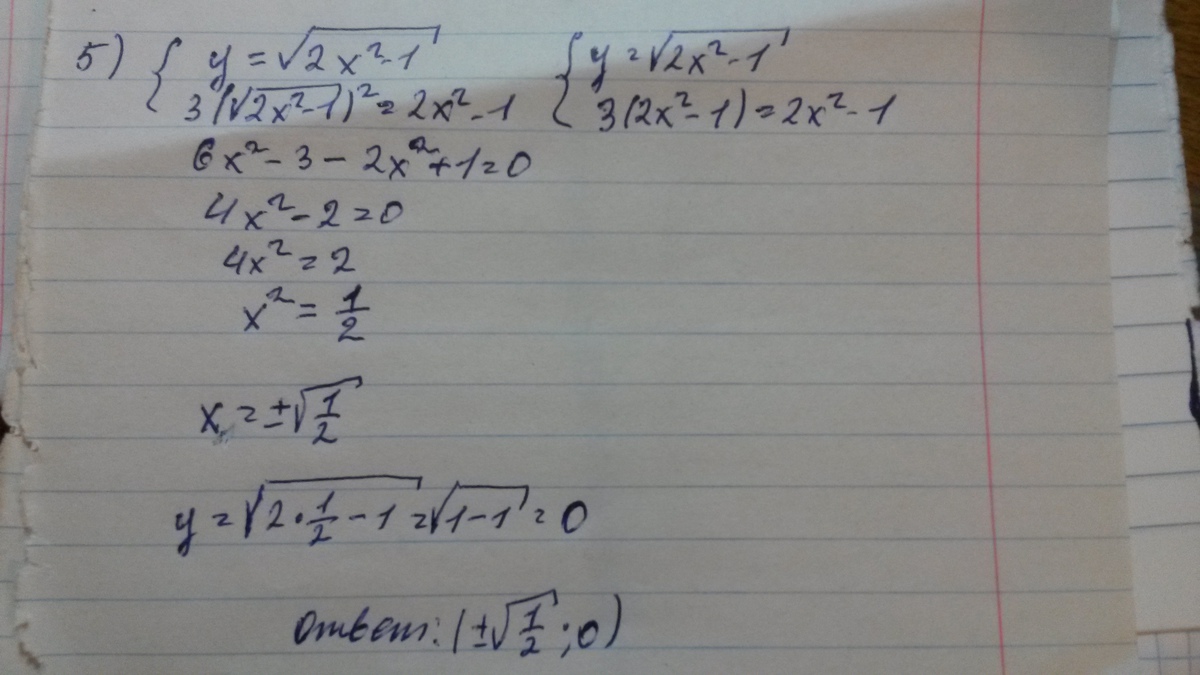 5) { y = √(2x²-1) { y = √(2x²-1)
3(√(2x²-1))² = 2x² - 1 3(2x² - 1) = 2x² - 1
6x² - 3 - 2x² + 1 = 0
4x² - 2 = 0
4x² = 2
x² = 1/2
x = ±√(1/2)
y = √(2·1/2 - 1) = √(1-1) = 0
Ответ: (±√(1/2); 0)